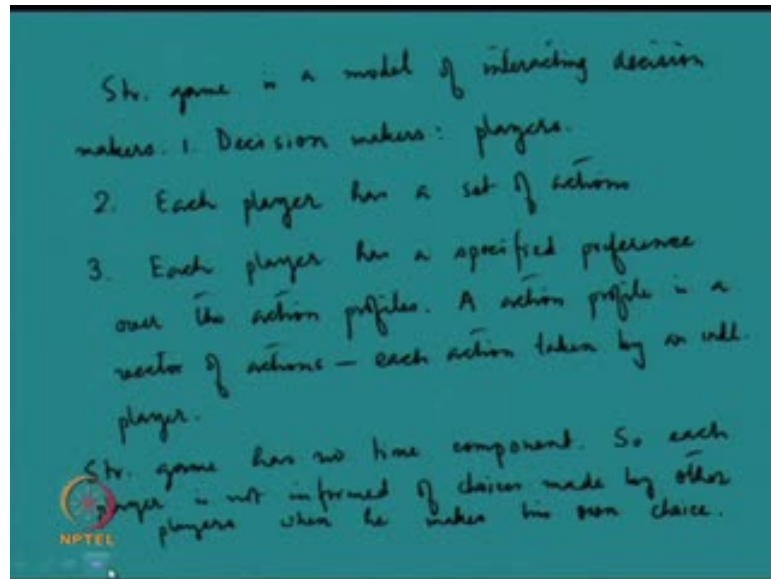 Str. game is a model of interacting decision
makers. 1. Decision makers: players.
2. Each player has a set of actions
3. Each player has a specified preference
over the action profiles. A action profile is a
vector of actions – each action taken by an indl.
player.
Str. game has no time component. So each
player is not informed of choices made by other
players when he makes his own choice.
NPTEL